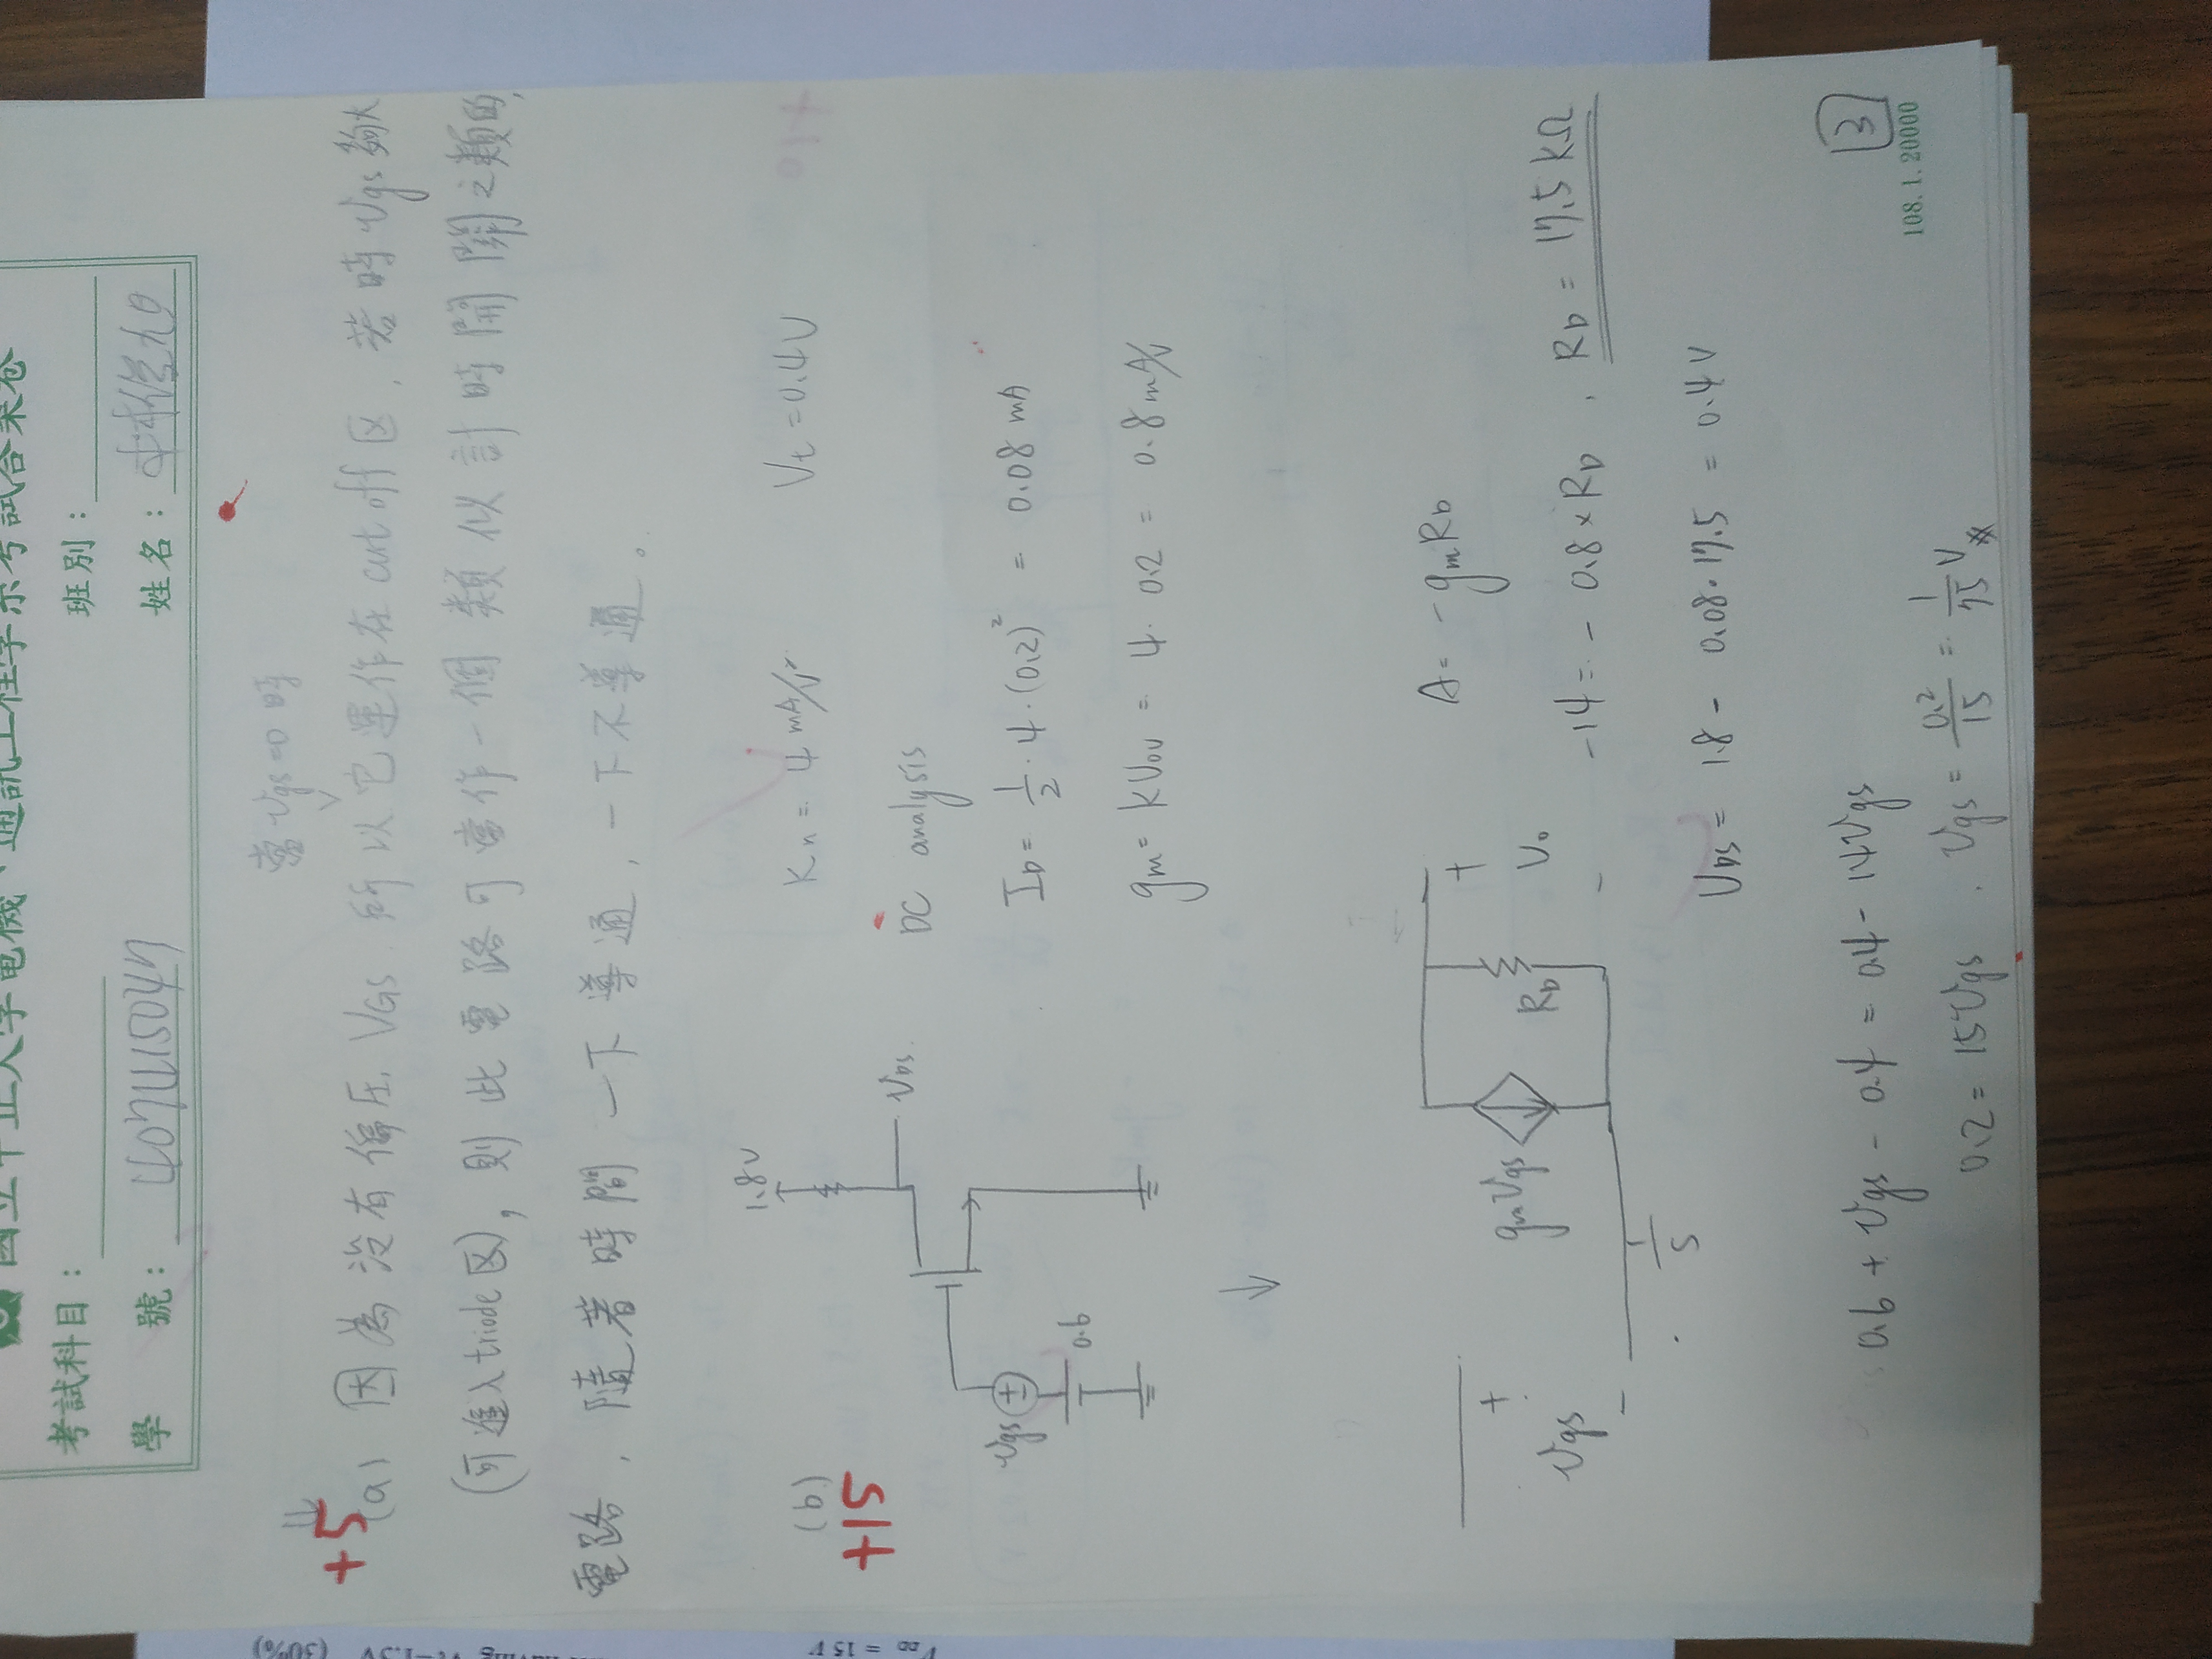 國立中正大學電機、通訊工程學系考試答案卷
考試科目：
班別：
學 號： 407415047
姓名：
當 vgs=0 時
+5
(a) 因為沒有偏压 VGS 所以它運作在 cut off 区，若時 vgs 夠大
(可進入 triode 区)，則此電路可當作一個類似計時開關之類的
電路，隨著時間一下導通，一下不導通。
(30%)
VDD = 15 V
(b)
+15
1.8V
VDS
vgs
0.6
Kn = 4 mA/V² Vt = 0.4V
DC analysis
ID = 1/2 · 4 · (0.2)² = 0.08 mA
gm = KVov = 4 · 0.2 = 0.8 mA/V
↓
+
vgs
-
gmvgs
RD
+
Vo
-
S
A = -gmRD
-14 = -0.8 × RD , RD = 17.5 kΩ
VDS = 1.8 - 0.08 · 17.5 = 0.4 V
0.6 + vgs - 0.4 = 0.4 - 14vgs
0.2 = 15vgs , vgs = 0.2/15 = 1/75 V
3
108. 1. 20000